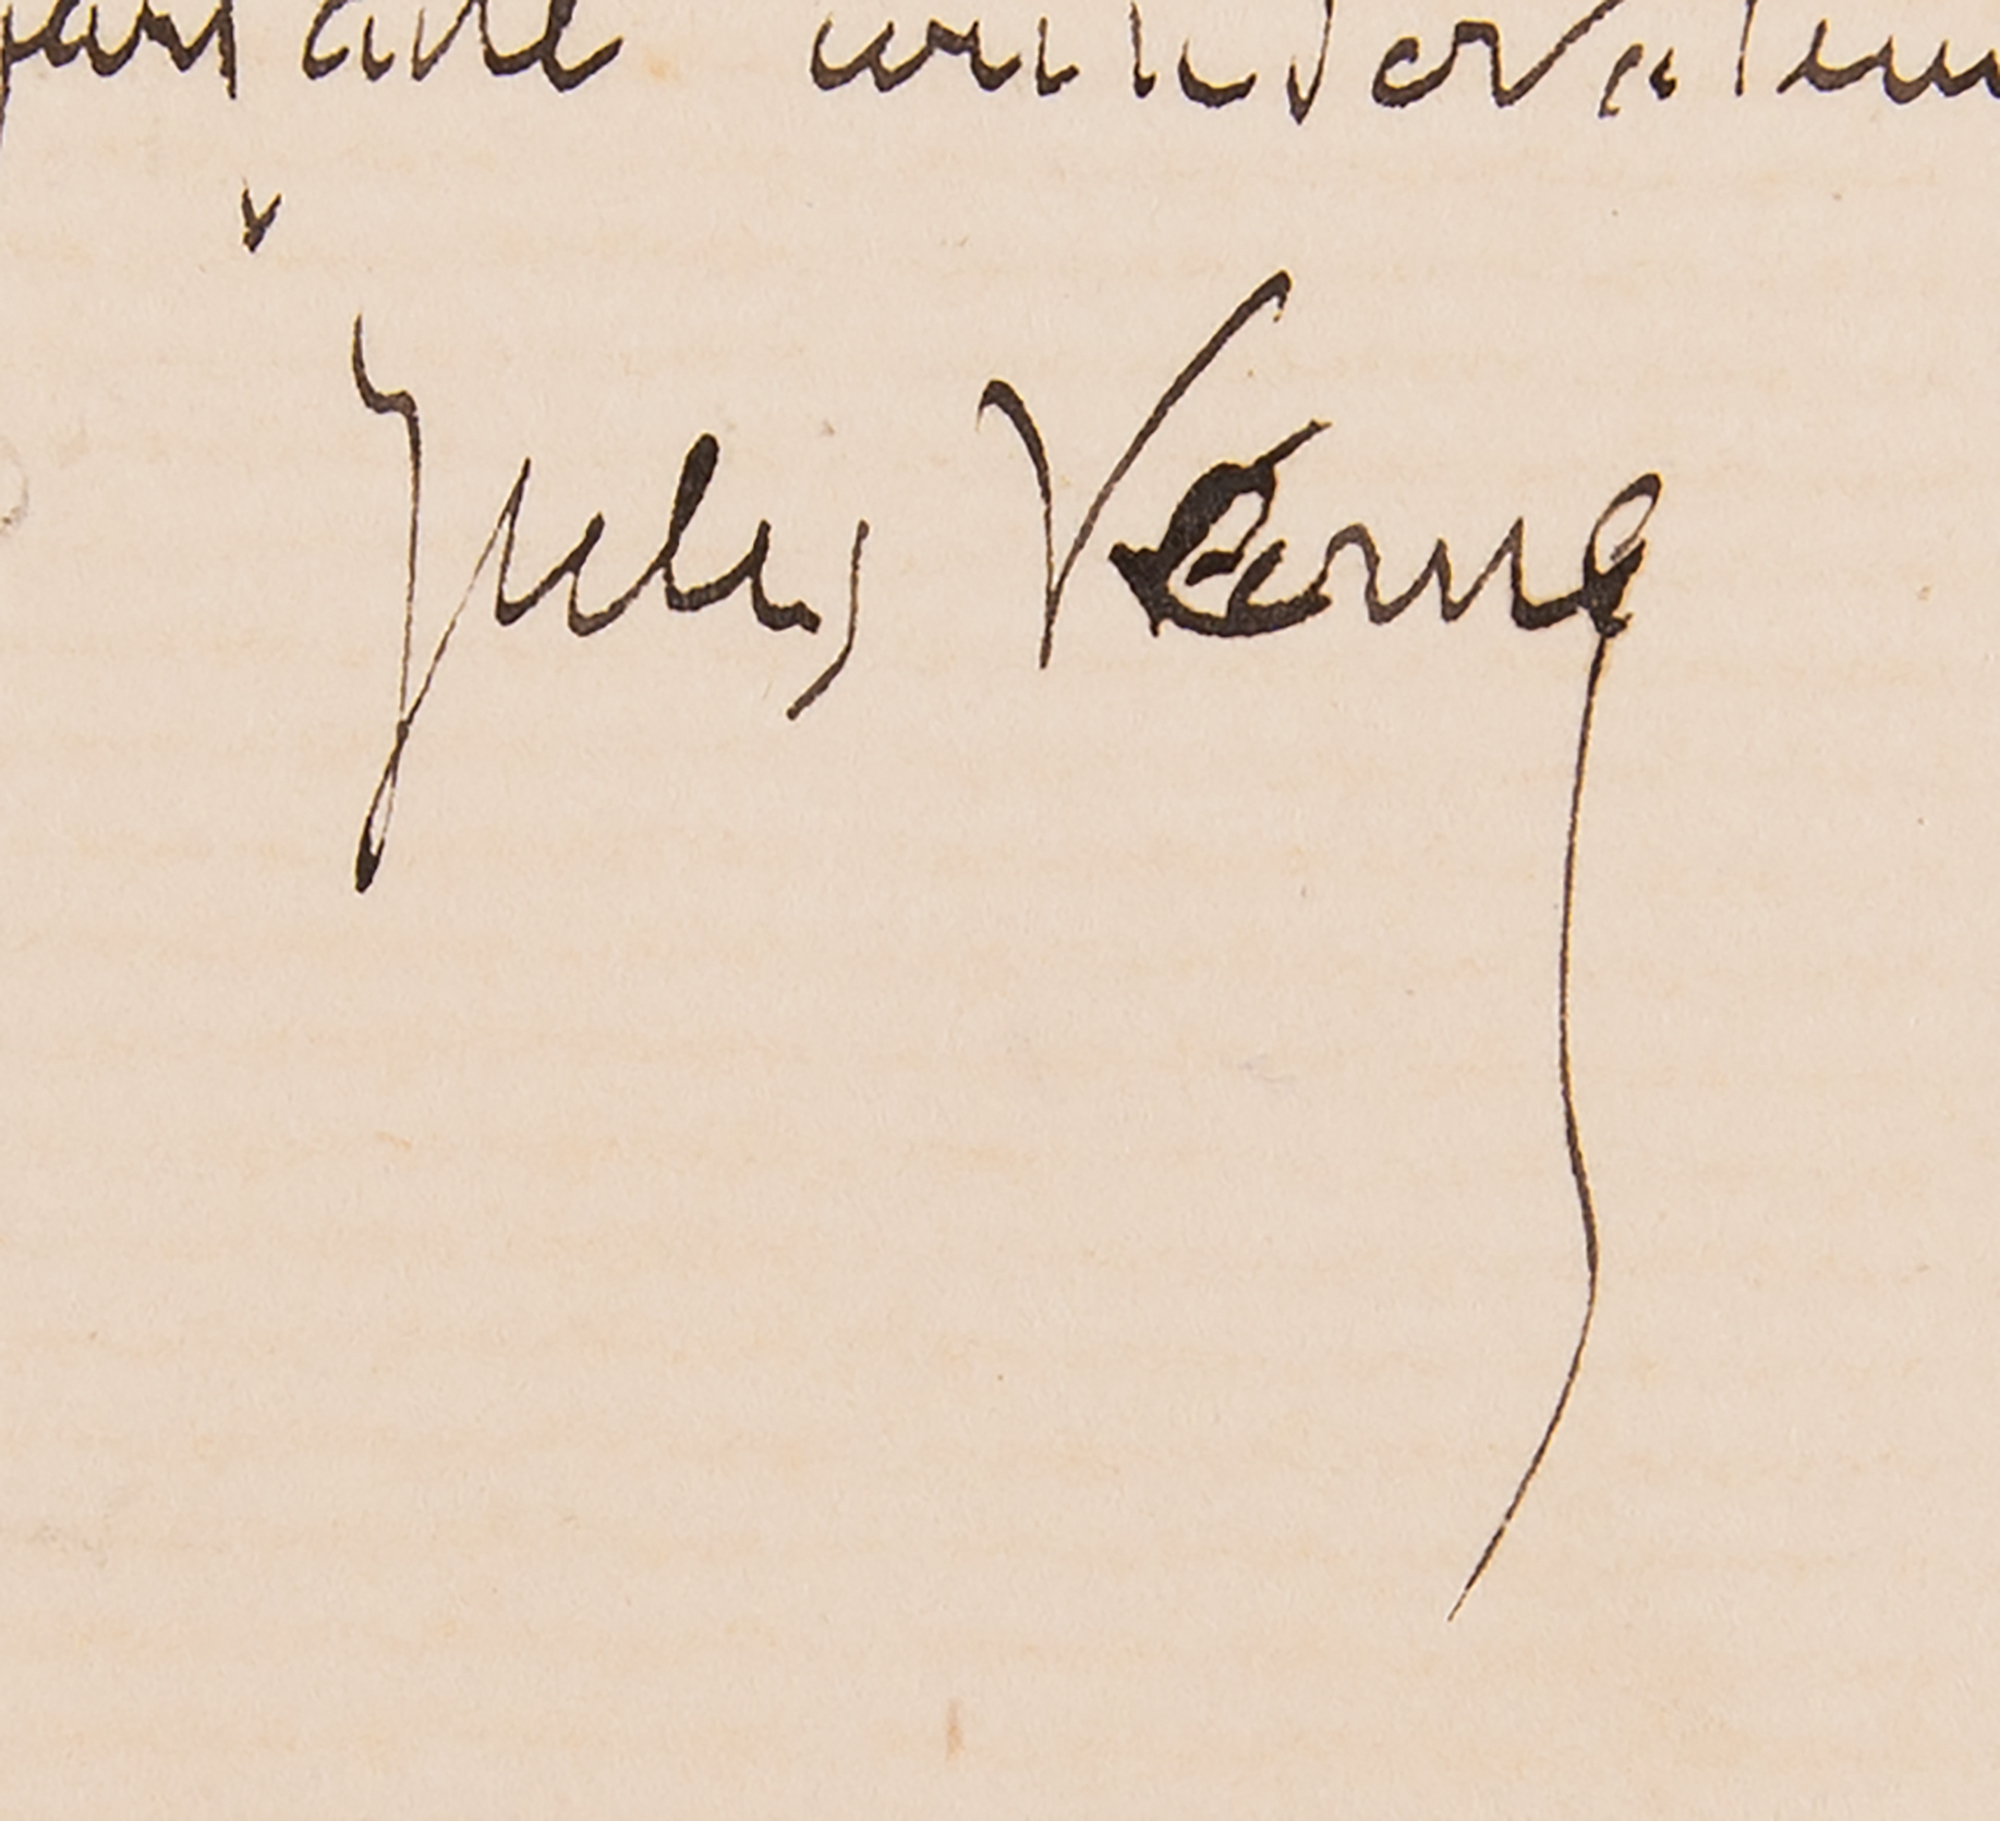 parfaite considération
Jules Verne